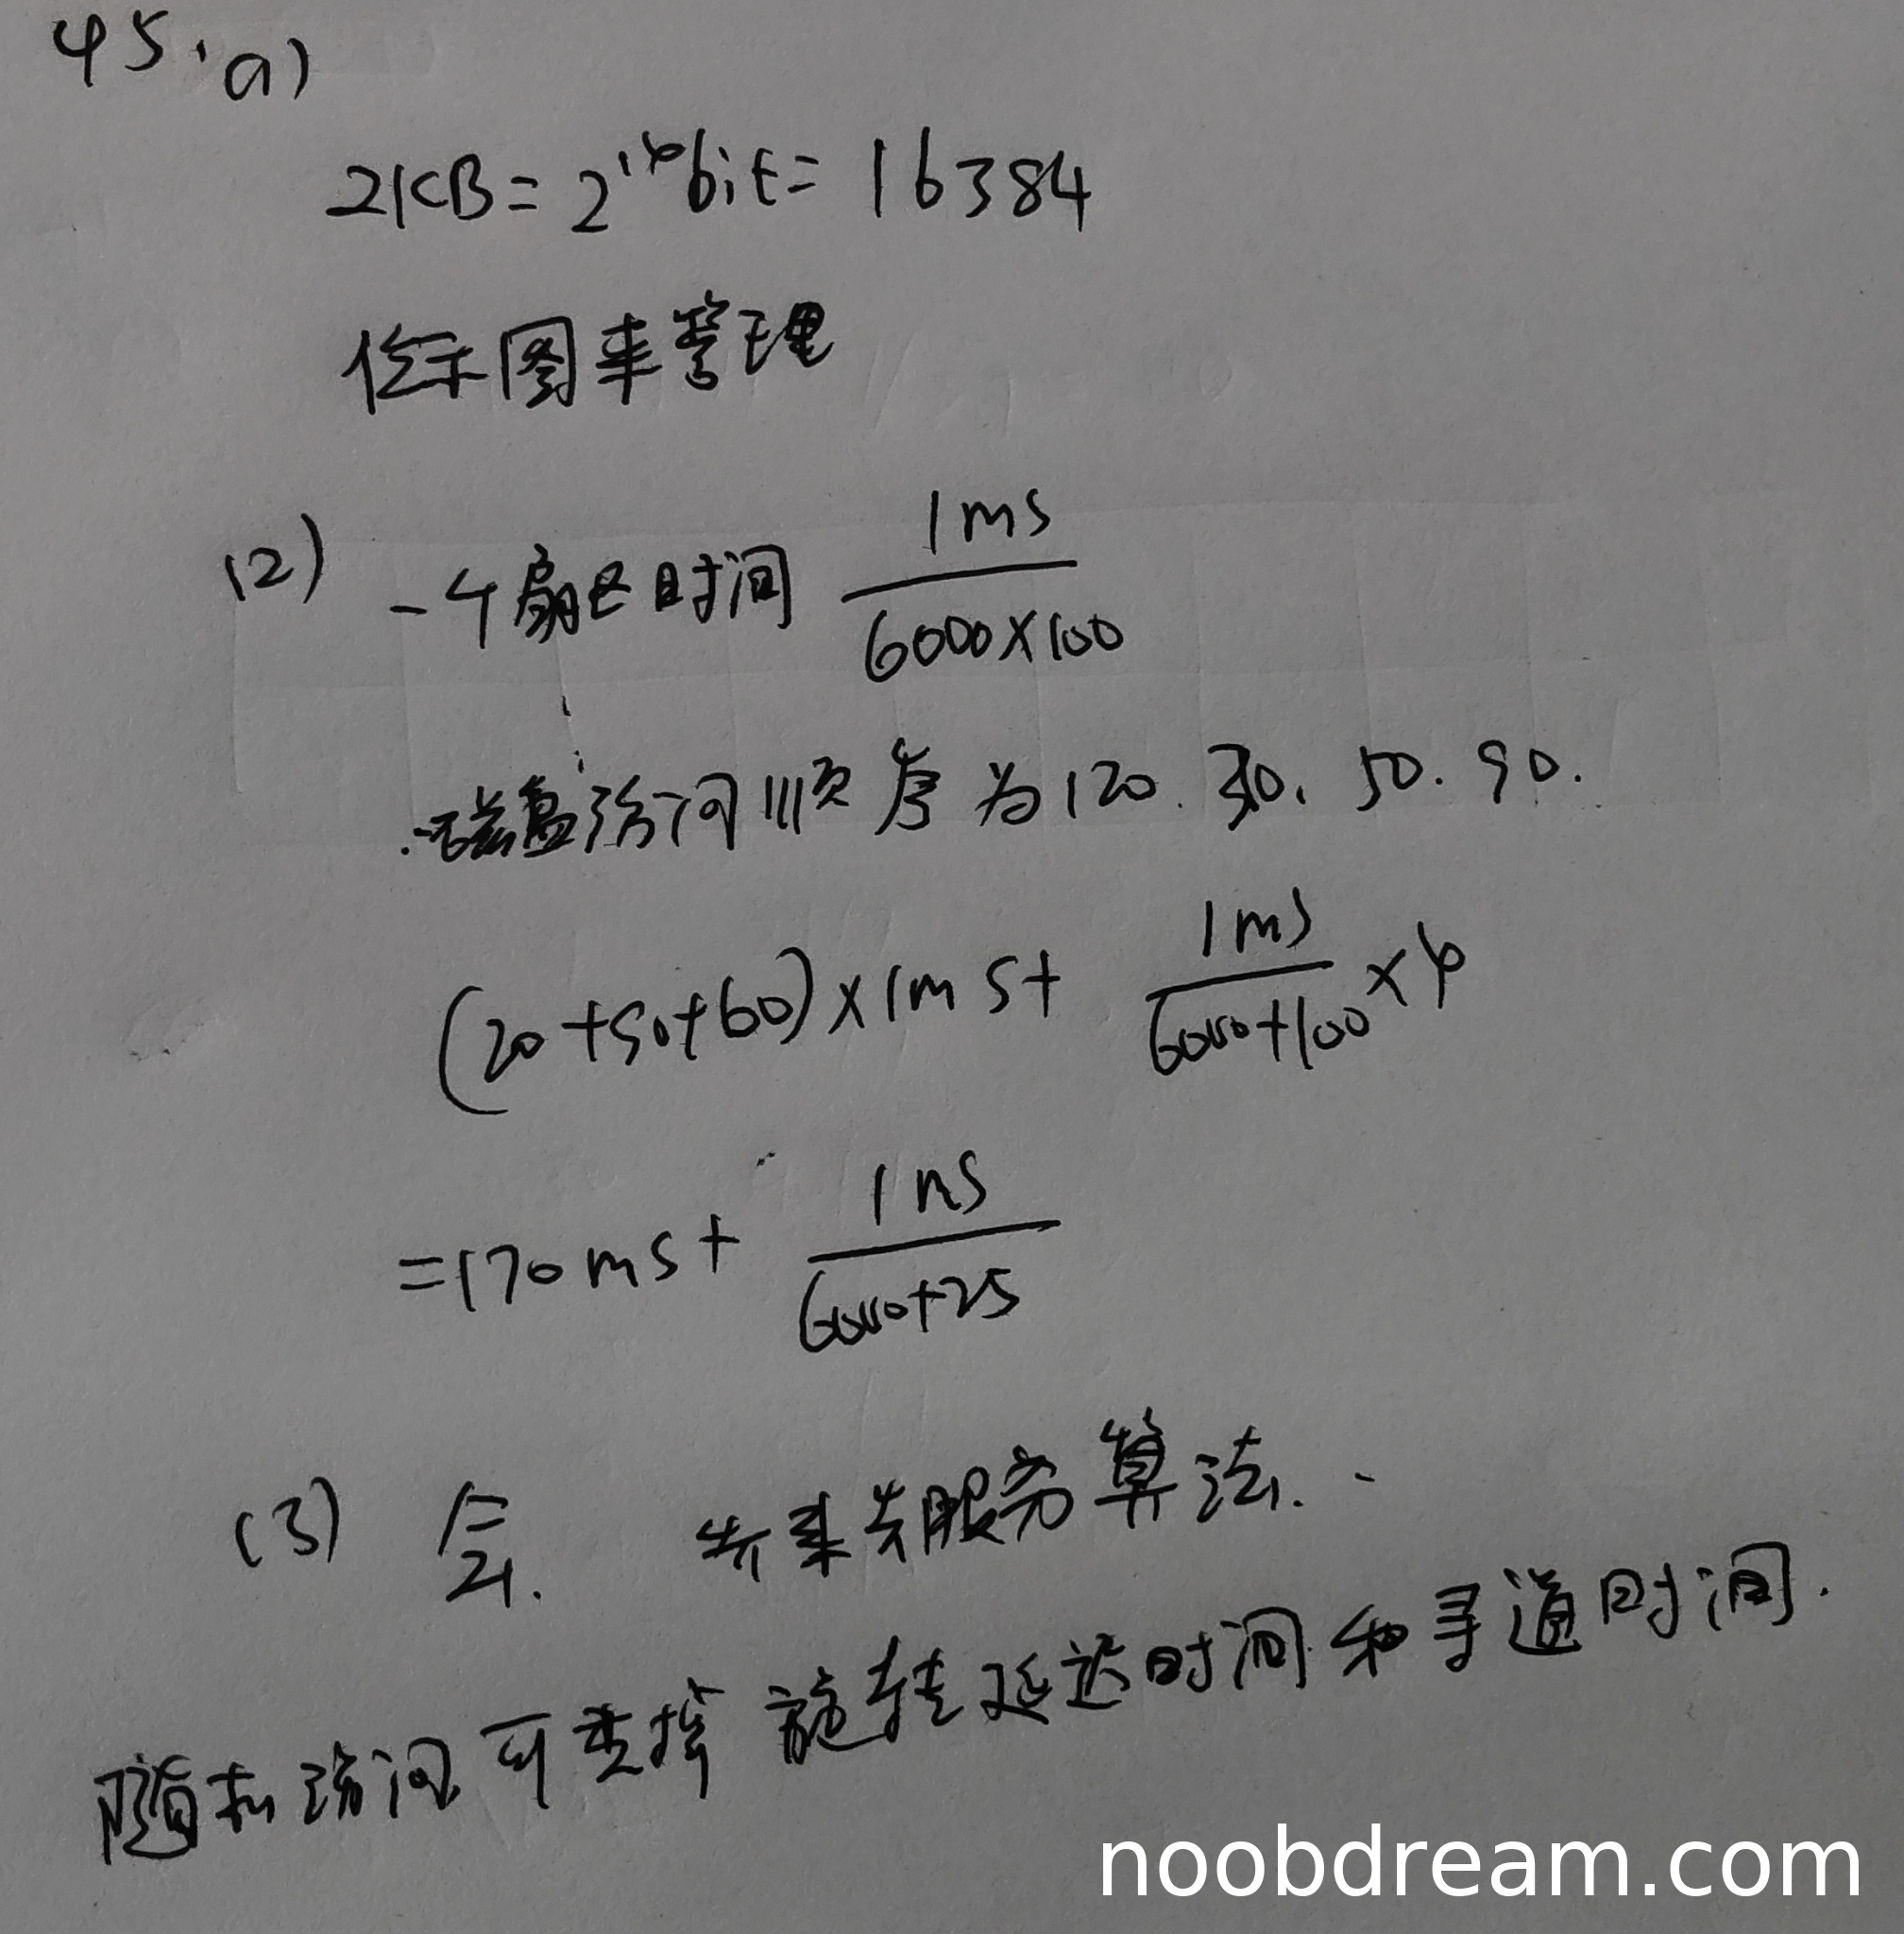 45. (1)
2KB = 2^14 bit = 16384
位示图来管理
(2) 一个扇区时间 1ms / 6000×100
磁盘访问顺序为120. 30. 50. 90.
(20+90+60)×1ms + 1ms / 6000+100 ×4
=170ms + 1ms / 6000+25
(3) 会. 先来先服务算法.
随机访问可 旋转延迟时间和寻道时间.
noobdream.com